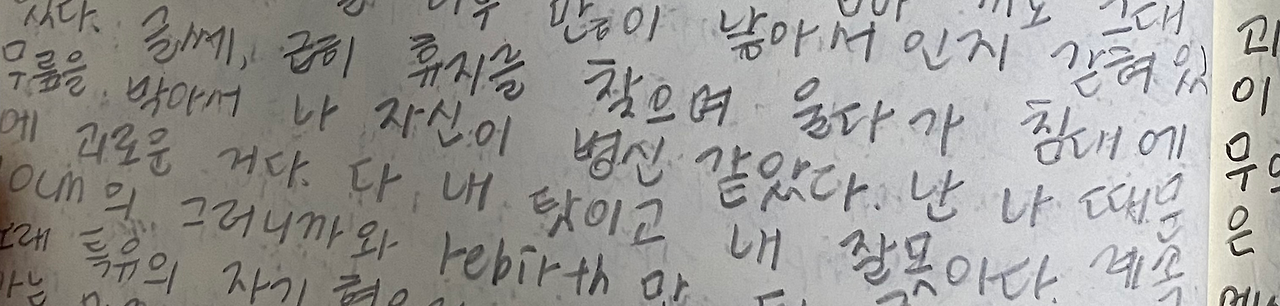 그대
많이 남아서 인지 갇혀있
글쎄, 급히 휴지를 찾으며 울다가 침대에
무릎을 박아서 나 자신이 병신 같았다. 난 나 때문
에 괴로운 거다. 다 내 탓이고 내 잘못이다. 계속
10cm의 그러니까와 rebirth 만
특유의 자기
이
무
은